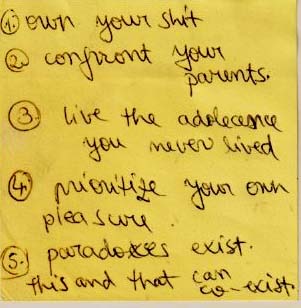 1. own your shit
2. confront your
parents.
3. live the adolecence
you never lived
4. prioritize your own
pleasure.
5. paradoxes exist.
this and that can
co-exist.